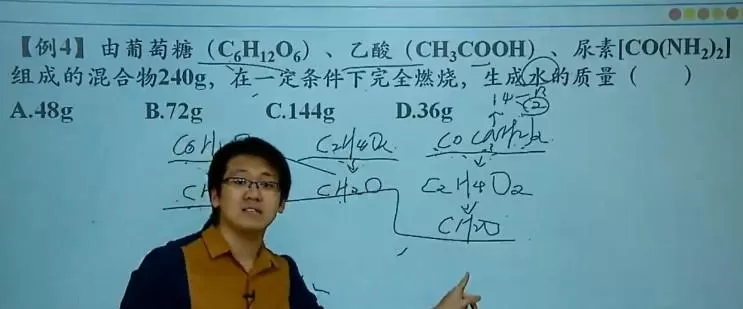 【例4】由葡萄糖(C₆H₁₂O₆)、乙酸(CH₃COOH)、尿素[CO(NH₂)₂]
组成的混合物240g,在一定条件下完全燃烧,生成水的质量( )
A.48g B.72g C.144g D.36g
14
C2
C6H C2H4O2 CO
CH CH2O C2H4O2
CH2O